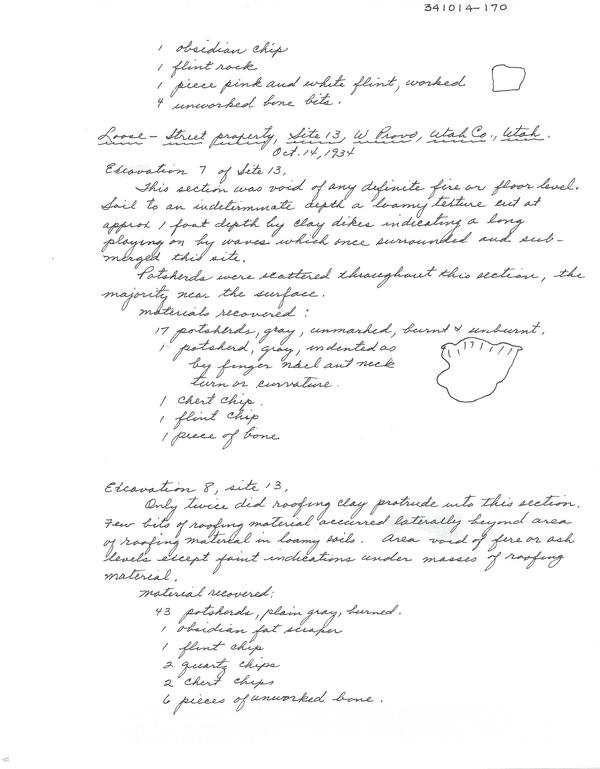 341014-170
1 obsidian chip
1 flint rock
1 piece pink and white flint, worked
4 unworked bone bits.
Loose - Street property, Site 13, W Provo, Utah Co., Utah.
Oct. 14, 1934
Excavation 7 of Site 13.
This section was void of any definite fire or floor level.
Soil to an indeterminate depth a loamy texture cut at
approx 1 foot depth by clay dikes indicating a long
playing on by waves which once surrounded and sub-
merged this site.
Potsherds were scattered throughout this section, the
majority near the surface.
Materials recovered:
17 potsherds, gray, unmarked, burnt & unburnt.
1 potsherd, gray, indented as
by finger nail at neck
turn or curvature.
1 chert chip.
1 flint chip
1 piece of bone
Excavation 8, site 13.
Only twice did roofing clay protrude into this section.
Few bits of roofing material occurred laterally beyond area
of roofing material in loamy soils. Area void of fire or ash
levels except faint indications under masses of roofing
material.
Material recovered:
43 potsherds, plain gray, burned.
1 obsidian fat scraper
1 flint chip
2 quartz chips
2 chert chips
6 pieces of unworked bone.